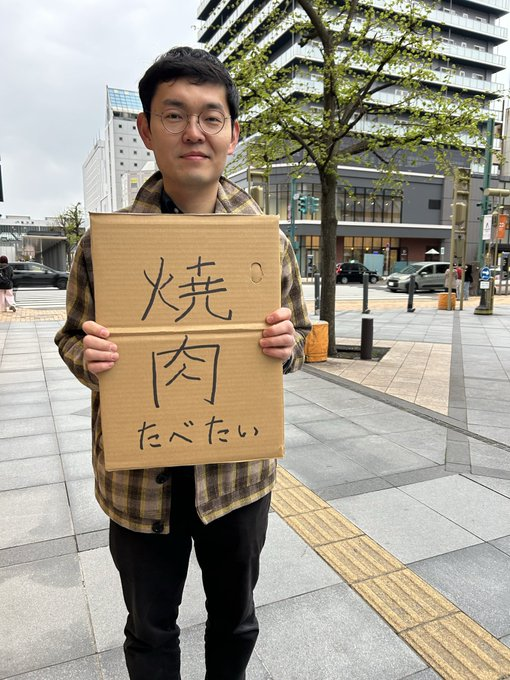 焼
肉
たべたい